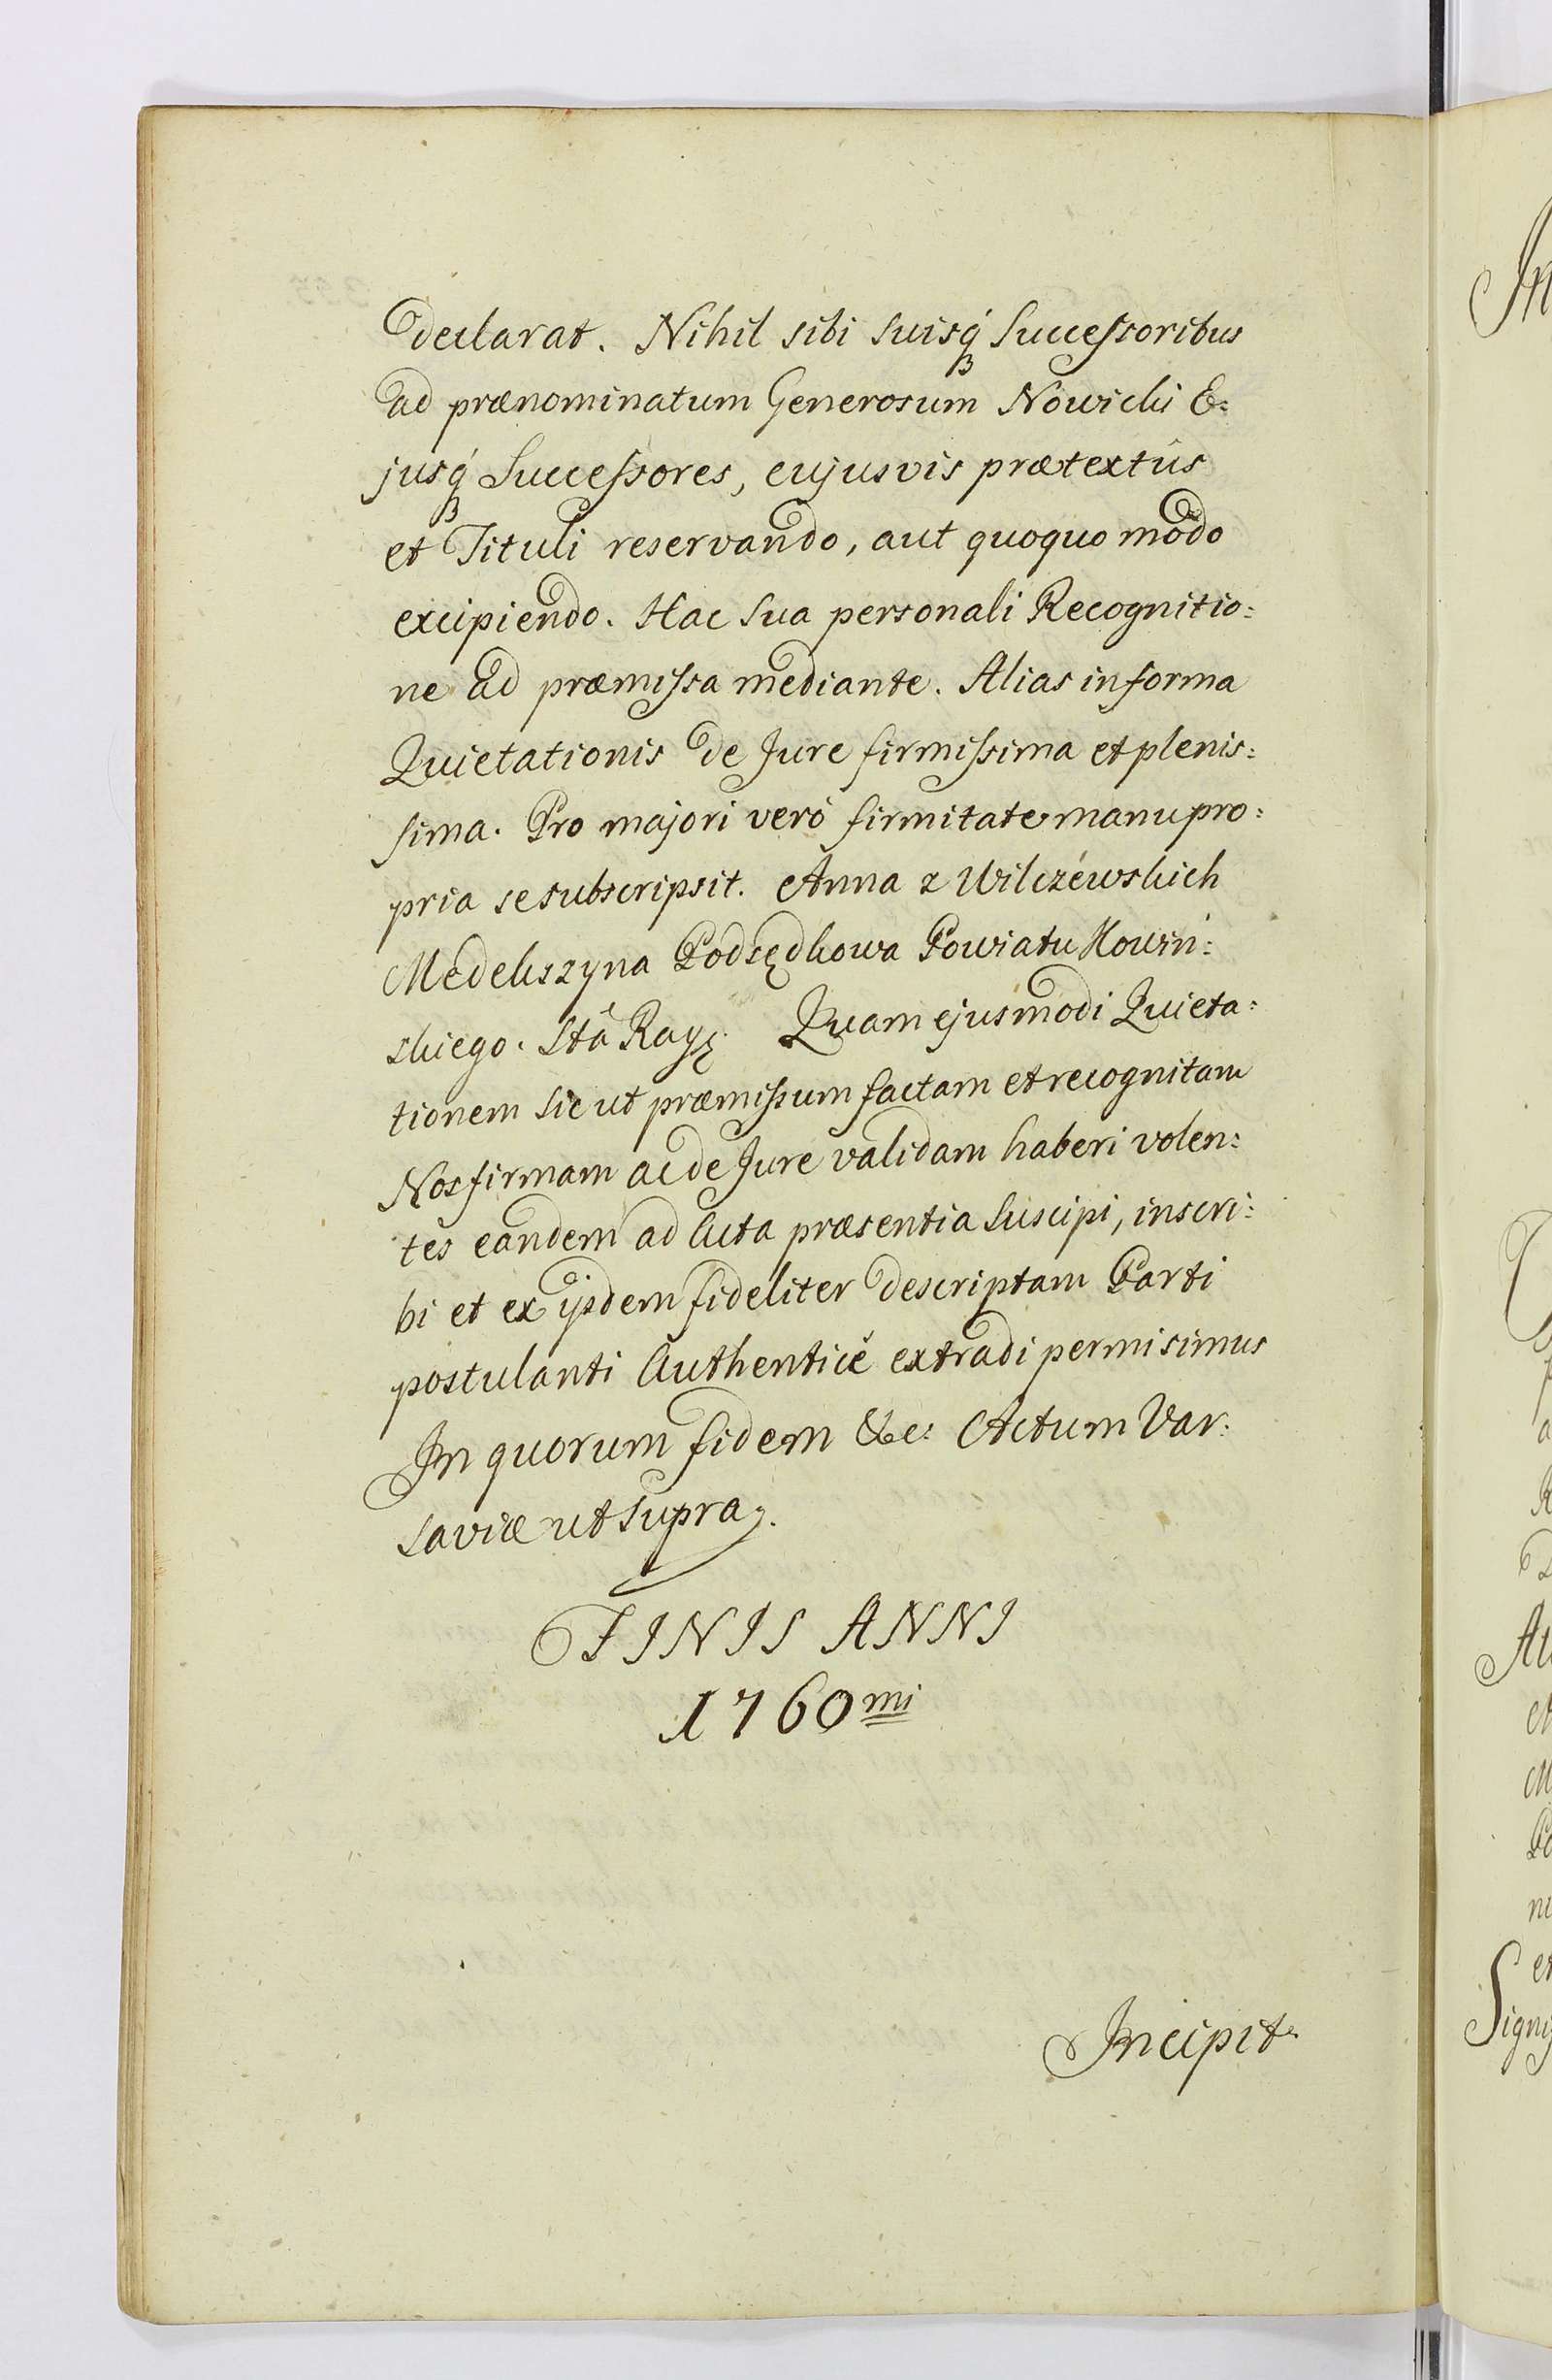 declarat. Nihil sibi suisq́ʒ Succeſsoribus
ad prænominatum Generosum Nowicki E:
jusq́ʒ Succeſsores, cujusvis prætextûs
et Tituli reservando, aut quoquo modo
excipiendo. Hac sua personali Recognitio:
ne ad præmiſsa mediante. Alias in forma
Quietationis de Jure firmiſsima et plenis:
sima. Pro majori verò firmitate manu pro:
pria se subscripsit. Anna z Wilczewskich
Medekszyna Podsędkowa Powiatu Kowin:
skiego. Stâ Ray.
Quam ejusmodi Quieta:
tionem sic ut præmiſsum factam et recognitam
Nos firmam ac de Jure validam haberi volen:
tes eandem ad Acta præsentia suscipi, inscri:
bi et ex ijsdem fideliter descriptam Parti
postulanti Authenticè extradi permisimus
In quorum fidem &c: Actum Var:
saviæ ut supra.
FINIS ANNI
1760mi
Incipit
In
Signi